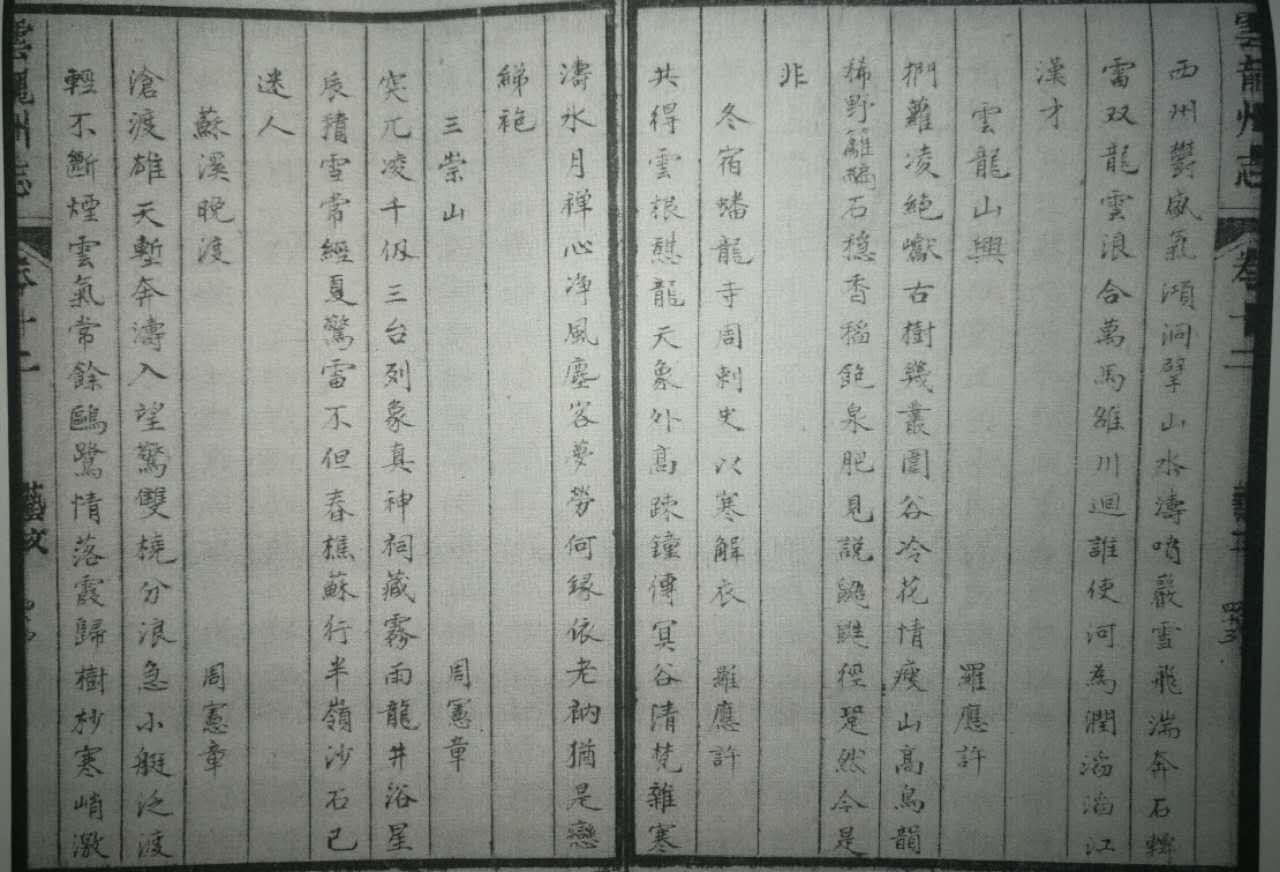 雲龍州志
卷十二
西州鬱盛氣澒洞擘山水濤哨巖雪飛湍奔石轉
雷双龍雲浪合萬馬維川迴誰便河為潤滔滔江
漢才
雲龍山興 羅應許
捫蘿凌絶巘古樹幾叢圍谷冷花情瘦山高鳥韻
稀野籬
石穩香稻飽泉肥見説鼪鼯徑跫然今是
非
冬宿蟠龍寺周刺史以寒解衣 羅應許
共得雲根慰龍天象外高疎鐘傳冥谷清梵雜寒
濤水月禅心净風塵客夢勞何緣依老衲猶是戀
綈袍
三崇山 周憲章
突兀凌千仭三台列象真神祠藏霧雨龍井浴星
辰積雪常經夏驚雷不但春樵蘇行半嶺沙石已
迷人
蘇溪晚渡 周憲章
滄渡雄天塹奔濤入望驚雙橈分浪急小艇泛渡
輕不斷煙雲氣常餘鷗鷺情落霞歸樹杪寒峭激
雲龍州志
卷十二
藝文